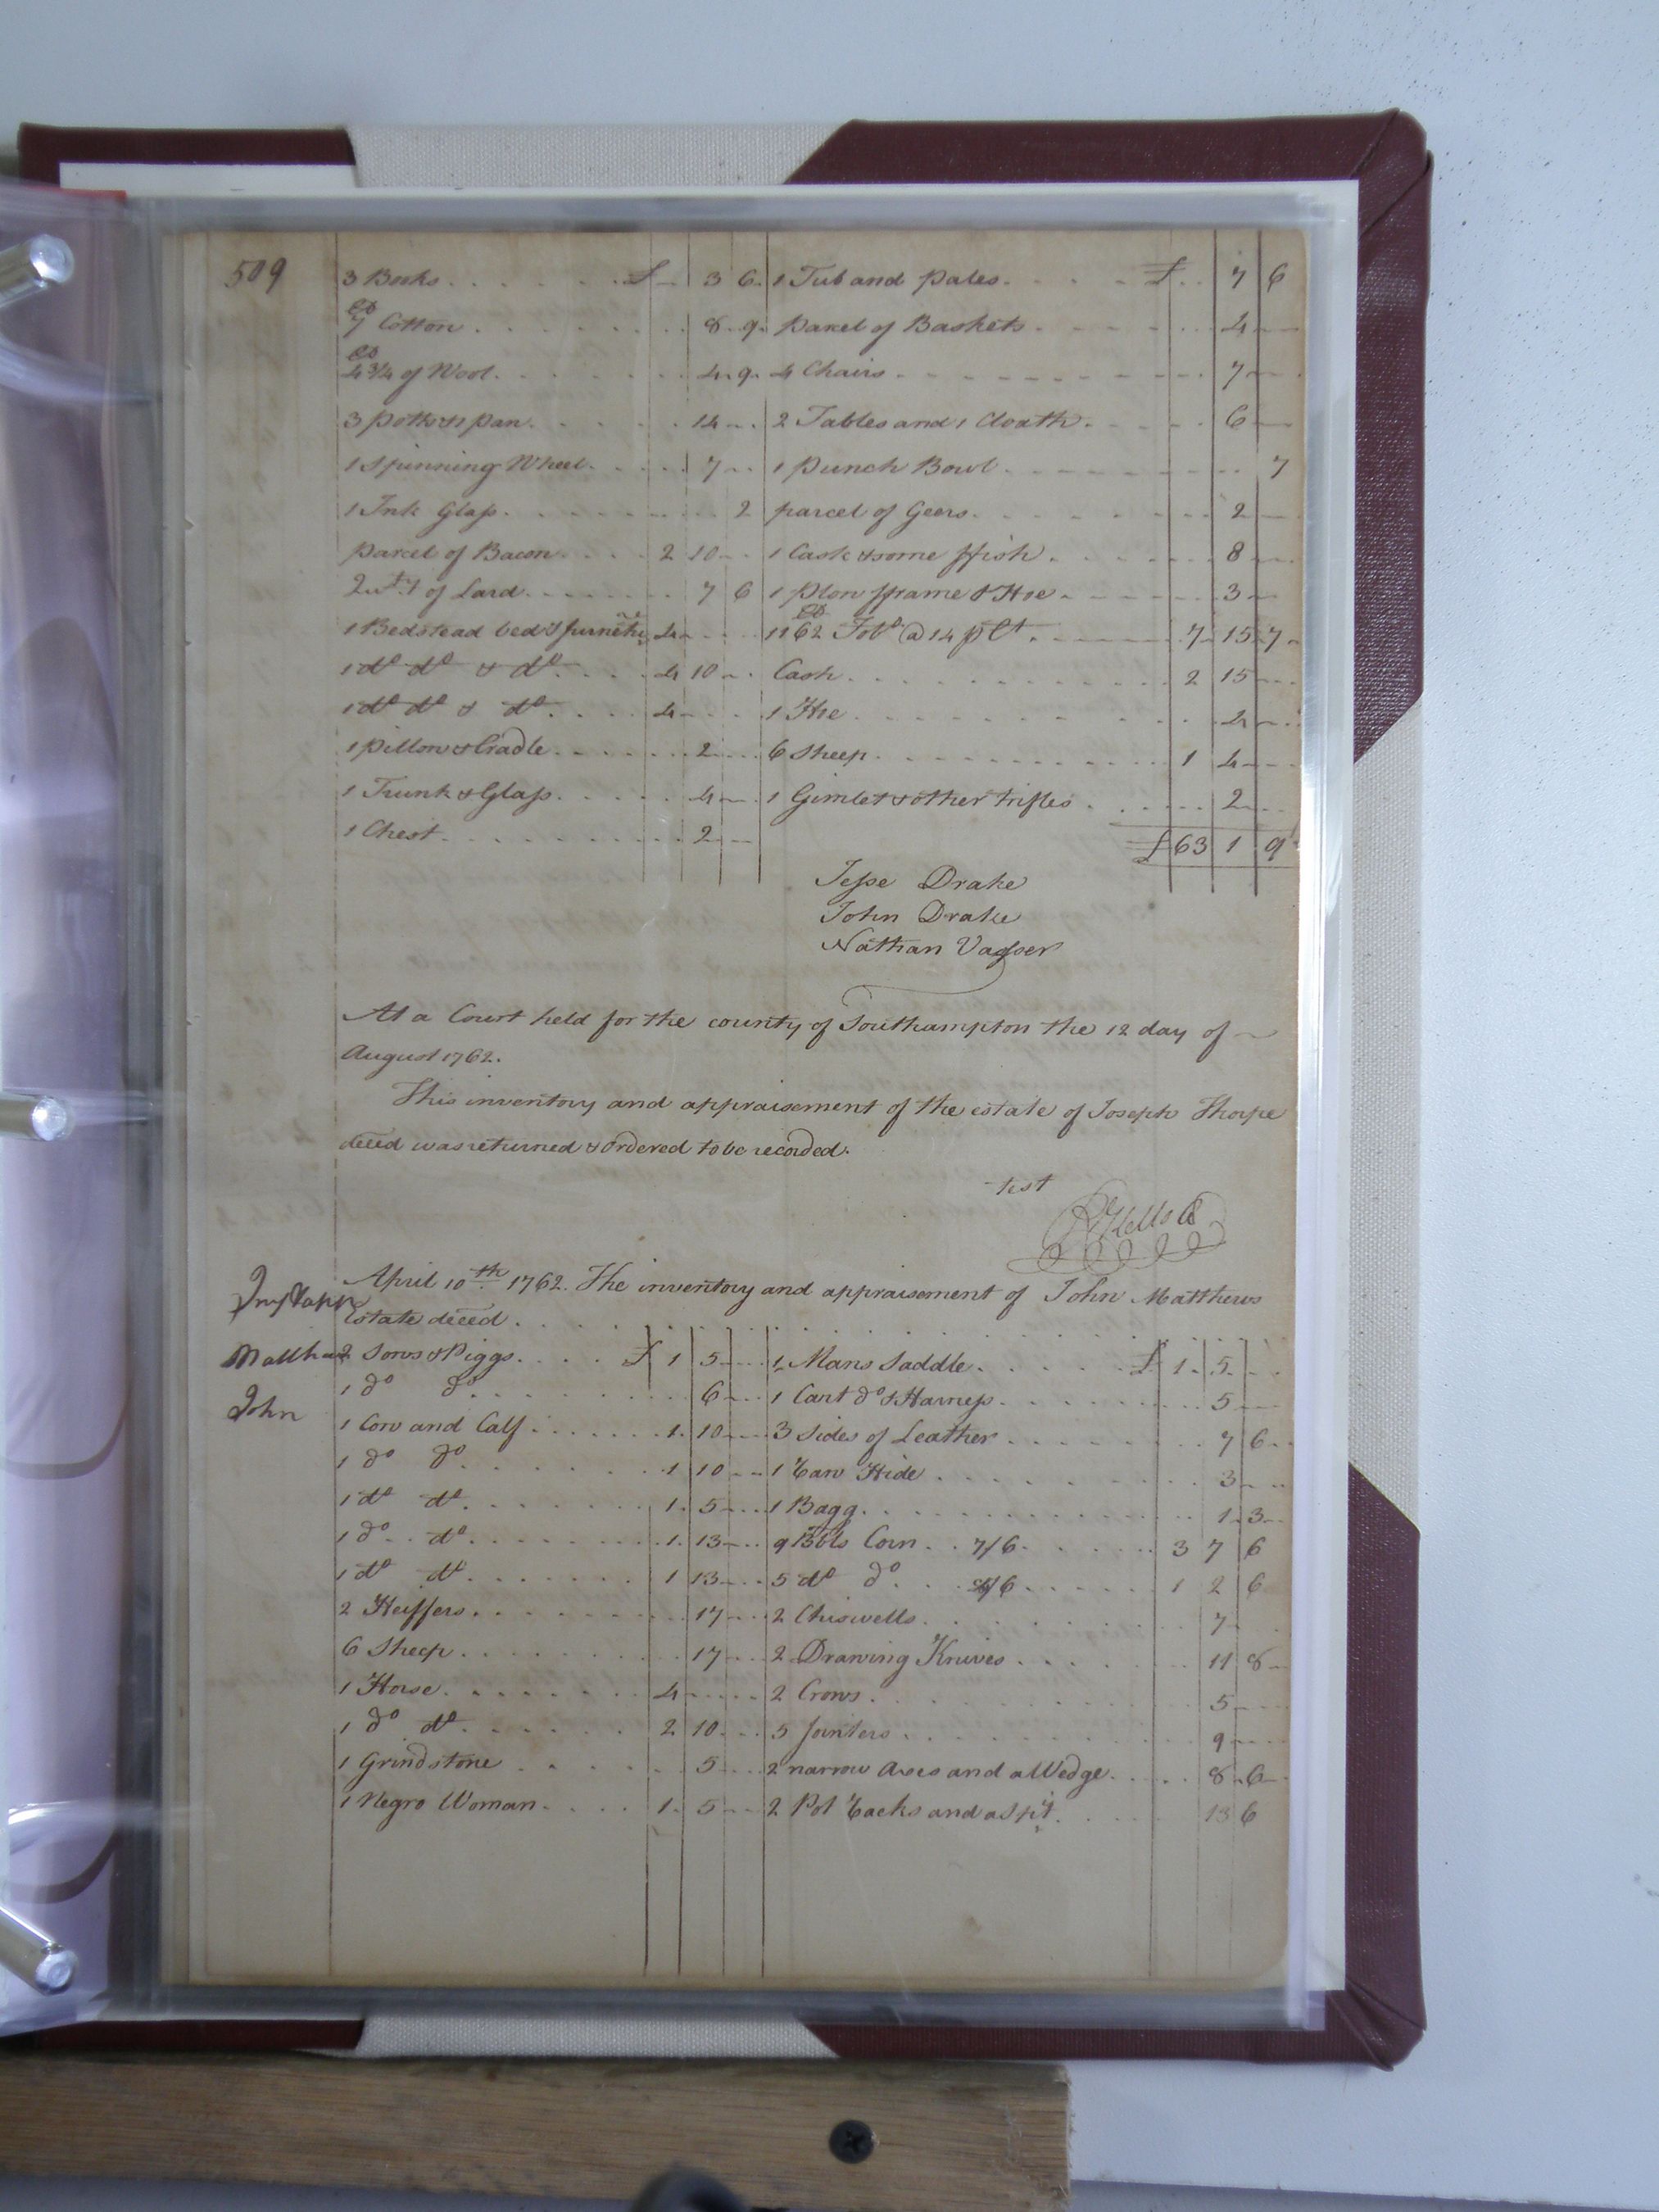 509
3 Books . . . . . . £ - 3 6
lb 7 Cotton . . . . . . 8 9
lb 4 3/4 of Wool . . . . . . 4 9
3 potts & 1 pan . . . . . 14
1 Spinning Wheel . . . . 7
1 Ink Glass . . . . . . 2
parcel of Bacon . . . . 2 10
of Lard . . . . . 7 6
1 Bedstead bed & furnitu. 4
1 do do & do . . . . 4 10
1 do do & do . . . . 4
1 pillow & Cradle . . . . . 2
1 Trunk & Glass . . . . . 4
1 Chest . . . . . . 2
1 Tub and pales . . . . £ . . 7 6
parcel of Baskets . . . . 4
4 Chairs . . . . . . 7
2 Tables and 1 Cloath . . . . 6
1 punch Bowl . . . . . . 7
parcel of Geers . . . . . 2
1 Cask & some ffish . . . . 8
1 plow fframe & Hoe . . . . 3
1162 lb Tobo @ 14 p Ct . . . 7 15 7
Cash . . . . . . 2 15
1 Hoe . . . . . . 2
6 Sheep . . . . . . 1 4
1 Gimlet & other trifles . . . . 2
£ 63 1 9
Jesse Drake
John Drake
Nathan Vasser
At a Court held for the county of Southampton the 12 day of
August 1762.
This inventory and appraisement of the estate of Joseph Thorpe
deced was returned & ordered to be recorded.
test
R Kello Cl
Inv & app
Matthews
John
April 10th 1762. The inventory and appraisement of John Matthews
Estate deced . . . .
2 Sows & Piggs . . . . £ 1 5
1 do do . . . . . 6
1 Cow and Calf . . . . . 1 10
1 do do . . . . . 1 10
1 do do . . . . . 1 5
1 do do . . . . . 1 13
1 do do . . . . . 1 13
2 Heiffers . . . . . 17
6 Sheep . . . . . 17
1 Horse . . . . . 4
1 do do . . . . . 2 10
1 Grindstone . . . . . 5
1 Negro Woman . . . . 1 5
1 Mans Saddle . . . . £ 1 5
1 Cart do & Harness . . . . 5
3 Sides of Leather . . . . 7 6
1 Raw Hide . . . . . 3
1 Bagg . . . . . 1 3
9 Bbls Corn . . 7/6 . . . . 3 7 6
5 do do . . . 4/6 . . . . 1 2 6
2 Chiswells . . . . . 7
2 Drawing Knives . . . . 11 8
2 Crows . . . . . 5
5 Jointers . . . . . 9
2 narrow Axes and a Wedge . . . . 8 6
2 Pot Racks and a Spit . . . . 13 6